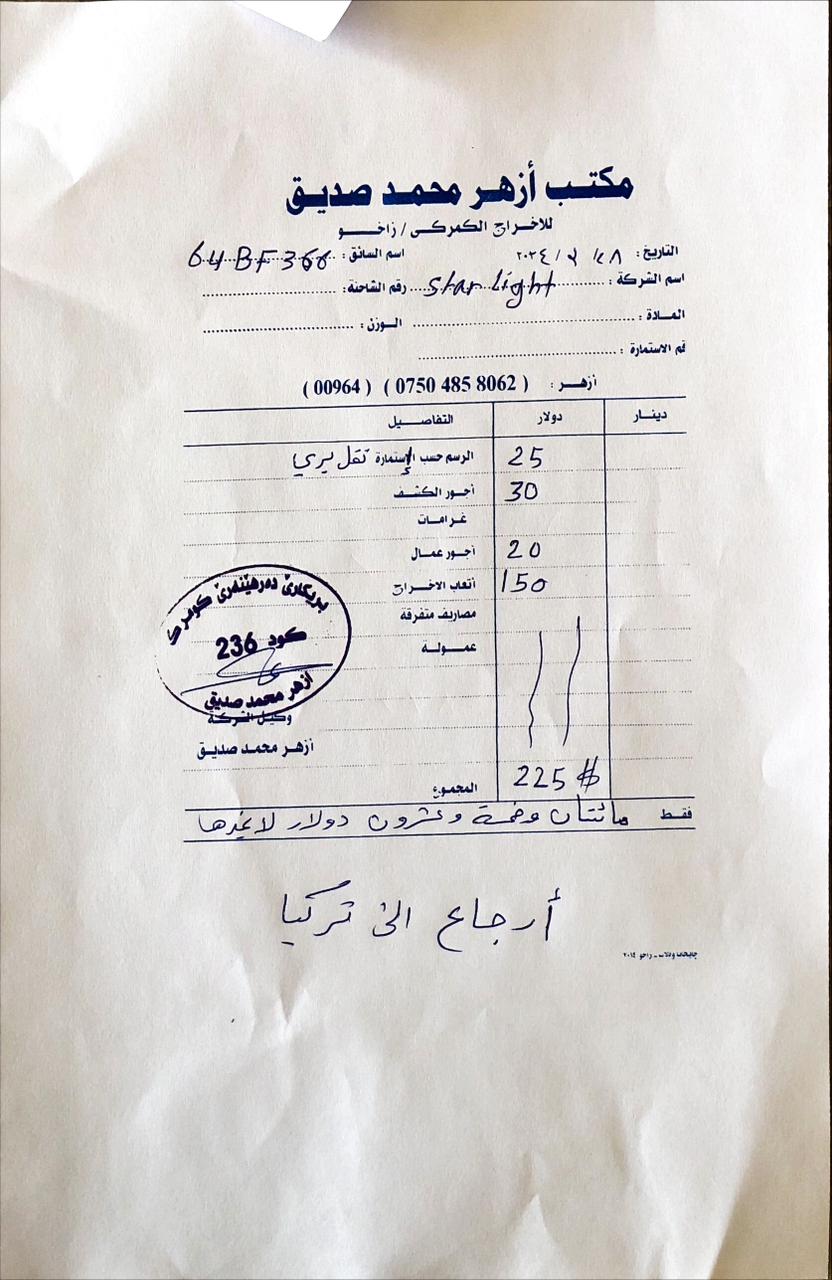 مكتب أزهر محمد صديق
للاخراج الكمركي / زاخو
التاريخ : ٢٨ / ٢ / ٢٠٢٤ اسم السائق : 64 BF 366
اسم الشركة : Star Light رقم الشاحنة :
المادة : الوزن :
قم الاستمارة :
أزهر : ( 0750 485 8062 ) ( 00964 )
دينار دولار التفاصيل
25 الرسم حسب إستمارة نقل بري
30 أجور الكشف
غرامات
20 أجور عمال
150 أتعاب الاخراج
مصاريف متفرقة
عمولة
بریکارێ دەرهێنەرێ کومرک
کود 236
ازهر محمد صديق
وكيل الشركة
أزهر محمد صديق
225 $ المجموع
فقط مائتان وخمسة وعشرون دولار لاغيرها
أرجاع الى تركيا